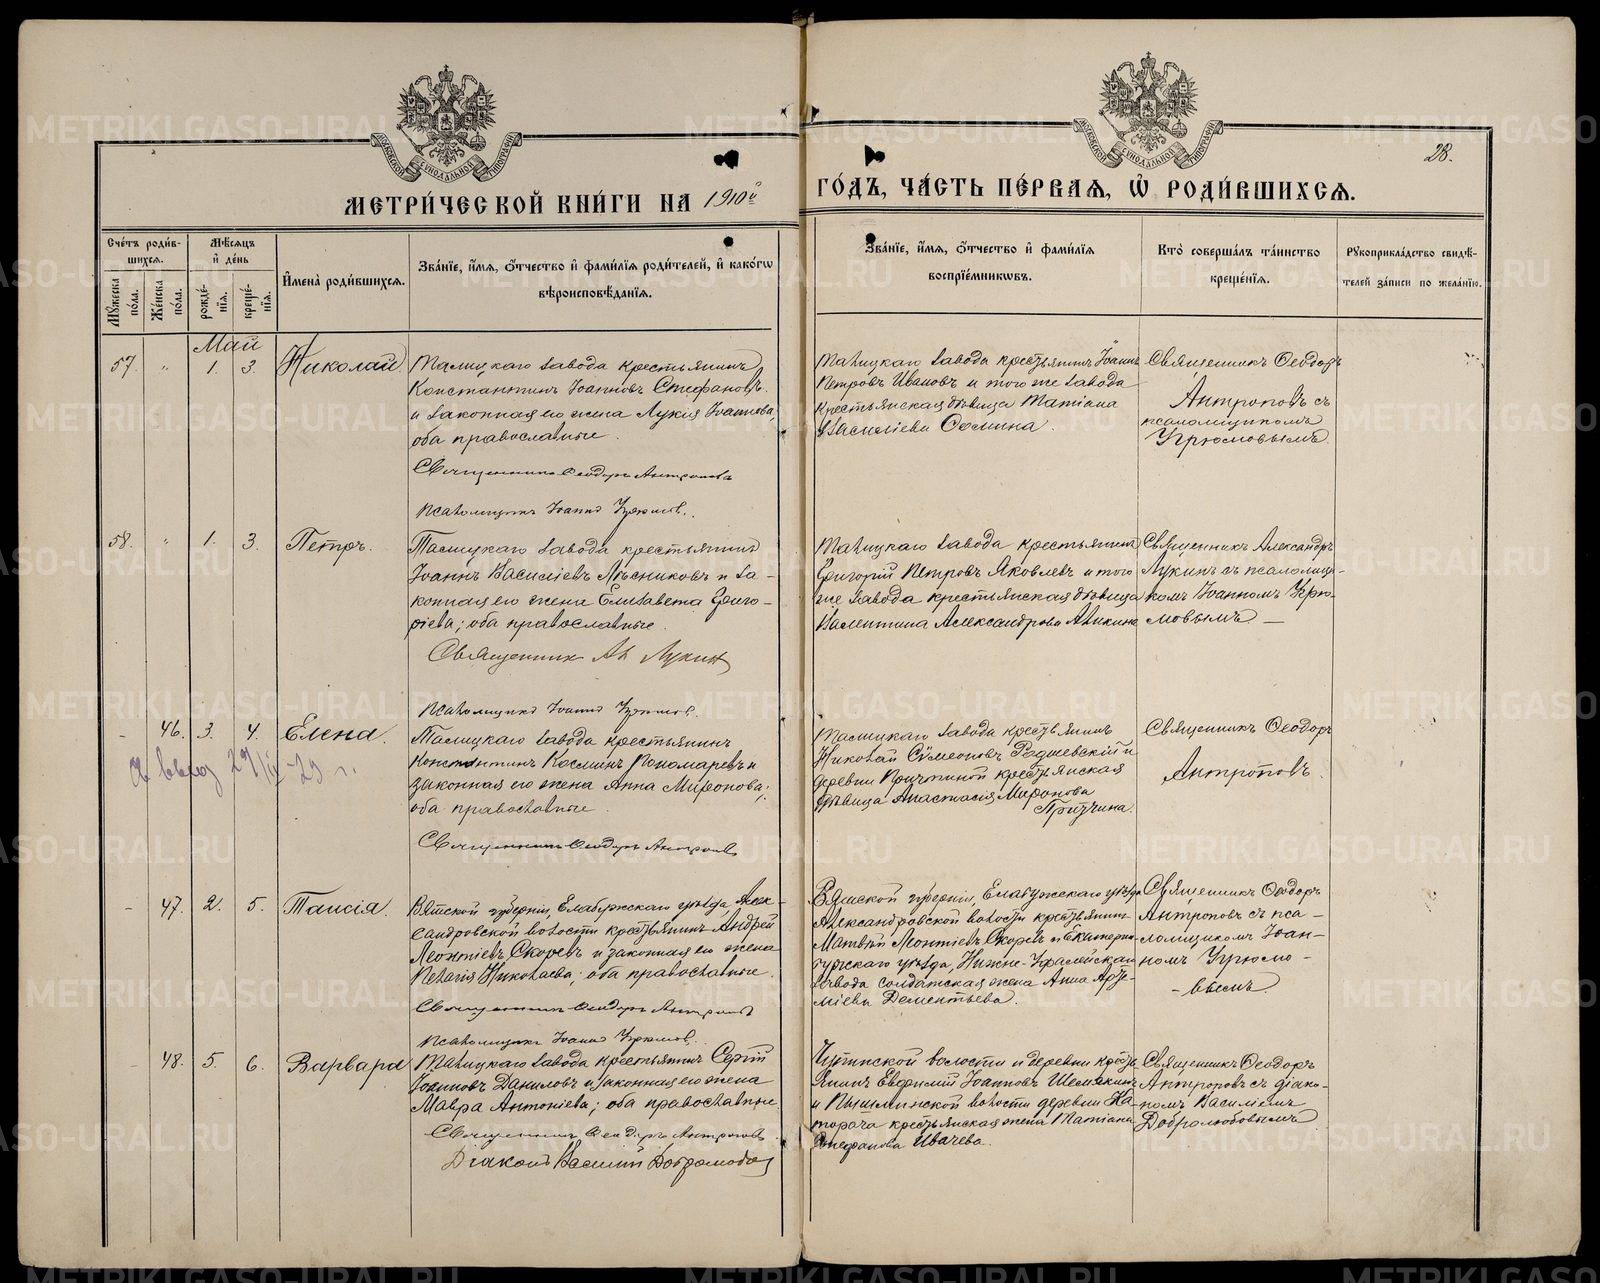 28.
МЕТРИ́ЧЕСКОЙ КНИ́ГИ НА 1910й ГО́ДЪ, ЧА́СТЬ ПЕ́РВАЯ, Ѡ҆ РОДИ́ВШИХСЯ.
Сче́тъ роди́в-
шихся.
Мꙋ́жеска по́ла.
Же́нска по́ла.
Мѣ́сяцъ
и҆ де́нь
рожде́-
нїя.
креще́-
нїя.
И҆мена̀ роди́вшихся.
Зва́нїе, и҆́мя, ѻ҆́тчество и҆ фами́лїя роди́телей, и҆ како́гѡ
вѣроисповѣ́данїя.
Зва́нїе, и҆́мя, ѻ҆́тчество и҆ фами́лїя
воспрїе́мникѡвъ.
Кто̀ соверша́лъ та́инство
креще́нїя.
Рꙋкоприкла́дство свидѣ́-
телей за́писи по жела́нїю.
Май
57. " 1. 3. Николай
Талицкаго завода крестьянинъ
Константинъ Іоанновъ Стефановъ
и законная его жена Лукія Іоаннова,
оба православные.
Священникъ Ѳеодоръ Антроповъ
Псаломщикъ Іоаннъ Угрюмов.
Талицкаго завода крестьянинъ Іоаннъ
Петровъ Ивановъ и того же завода
крестьянская дѣвица Татіана
Васильева Ѳомина.
Священникъ Ѳеодоръ
Антроповъ съ
псаломщикомъ
Угрюмовымъ.
58. " 1. 3. Петръ.
Талицкаго завода крестьянинъ
Іоаннъ Василіевъ Мясниковъ и за-
конная его жена Елизавета Григо-
ріева; оба православные.
Священник Ал Лукин
Псаломщикъ Іоаннъ Угрюмов.
Талицкаго завода крестьянинъ
Григорій Петровъ Яковлевъ и того
же завода крестьянская дѣвица
Валентина Александрова Аникина
Священникъ Александръ
Лукинъ съ псаломщи-
комъ Іоанномъ Угрю-
мовымъ. —
- 46. 3. 4. Елена.
Талицкаго завода крестьянинъ
Константинъ Косминъ Пономаревъ и
законная его жена Анна Миронова;
оба православные.
Священникъ Ѳеодоръ Антроповъ
Талицкаго завода крестьянинъ
Николай Сѵмеоновъ и
деревни крестьянская
дѣвица Анастасія Миронова
Священникъ Ѳеодоръ
Антроповъ.
- 47. 2. 5. Таисія.
Вятской губерніи, Елабужскаго уѣзда, Алек-
сандровской волости крестьянинъ Андрей
Леонтіевъ Скоревъ и законная его жена
Пелагія Николаева; оба православные.
Священникъ Ѳеодоръ Антроповъ
Псаломщикъ Іоаннъ Угрюмов.
Вятской губерніи, Елабужскаго уѣзда
Александровской волости крестьянинъ
Матвѣй Леонтіевъ Скоревъ и Екатерин-
бургскаго уѣзда, Нижне-Уфалейскаго
завода солдатская жена Анна Арте-
міева Дементьева.
Священникъ Ѳеодоръ
Антроповъ съ пса-
ломщикомъ Іоан-
номъ Угрюмо-
- вымъ.
- 48. 5. 6. Варвара
Талицкаго завода крестьянинъ Сергій
Іоанновъ Даниловъ и законная его жена
Мавра Антоніева; оба православные.
Священникъ Ѳеодоръ Антроповъ
Діаконъ Василій Добролюбов
волости и деревни кресть-
янинъ Евфимій Іоанновъ Шемякинъ
и Пышминской волости деревни
крестьянская жена Татіана
Стефанова Ивачева.
Священникъ Ѳеодоръ
Антроповъ съ діако-
номъ Василіемъ
Добролюбовымъ
METRIKI.GASO-URAL.RU